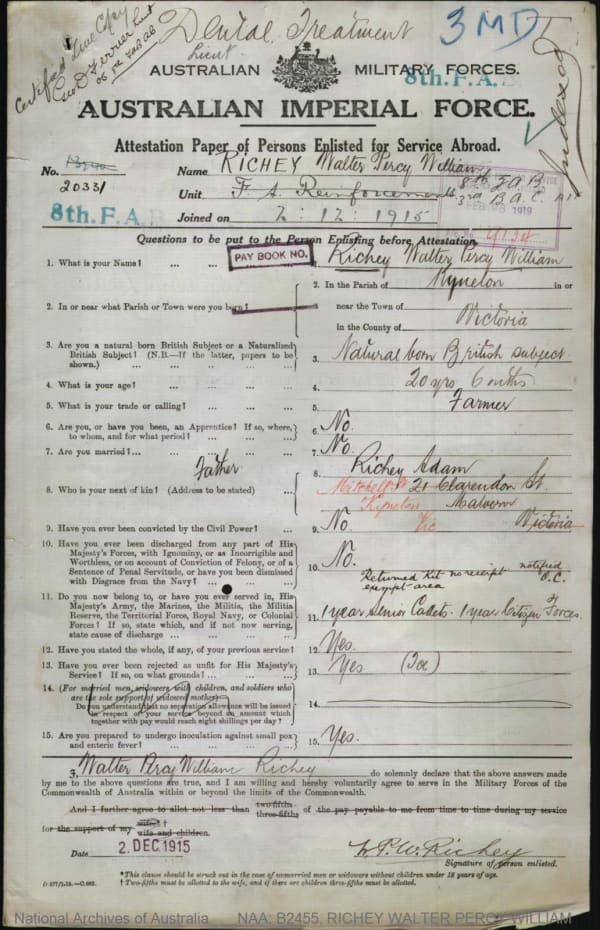 Certified True Copy
Dental Treatment
3 MD
Lieut
AUSTRALIAN MILITARY FORCES.
8th. F.A.B
Indexed
AUSTRALIAN IMPERIAL FORCE.
Attestation Paper of Persons Enlisted for Service Abroad.
No. 20331
Name RICHEY Walter Percy William
Unit F. A. Reinforcements 8th FAB
3rd B.A.C.
1919
8th. F.A.B
Joined on 2.12.1915
Questions to be put to the Person Enlisting before Attestation.
PAY BOOK NO.
1. What is your Name? ... ... ... ... 1. Richey Walter Percy William
2. In or near what Parish or Town were you born? 2. In the Parish of Kyneton in or
near the Town of
in the County of Victoria
3. Are you a natural born British Subject or a Naturalised British Subject? (N.B.—If the latter, papers to be shown.) 3. Natural born British subject
4. What is your age? ... 4. 20 yrs 6 mths
5. What is your trade or calling? ... 5. Farmer
6. Are you, or have you been, an Apprentice? If so, where, to whom, and for what period? ... 6. No.
7. Are you married? ... 7. No.
Father
8. Who is your next of kin? (Address to be stated) ... 8. Richey Adam
Mitchell St 21 Clarendon St
Kyneton Malvern
Vic Victoria
9. Have you ever been convicted by the Civil Power? ... 9. No.
10. Have you ever been discharged from any part of His Majesty's Forces, with Ignominy, or as Incorrigible and Worthless, or on account of Conviction of Felony, or of a Sentence of Penal Servitude, or have you been dismissed with Disgrace from the Navy? ... 10. No.
Returned Kit no receipt notified
exempt area O.C.
11. Do you now belong to, or have you ever served in, His Majesty's Army, the Marines, the Militia, the Militia Reserve, the Territorial Force, Royal Navy, or Colonial Forces? If so, state which, and if not now serving, state cause of discharge ... 11. 1 year Senior Cadets. 1 year Citizen Forces.
12. Have you stated the whole, if any, of your previous service? 12. Yes.
13. Have you ever been rejected as unfit for His Majesty's Service? If so, on what grounds? ... 13. Yes (Toe)
14. (For married men, widowers with children, and soldiers who are the sole support of widowed mother)—
Do you understand that no separation allowance will be issued in respect of your service beyond an amount which together with pay would reach eight shillings per day? 14.
15. Are you prepared to undergo inoculation against small pox and enteric fever? ... 15. Yes.
I, Walter Percy William Richey do solemnly declare that the above answers made
by me to the above questions are true, and I am willing and hereby voluntarily agree to serve in the Military Forces of the
Commonwealth of Australia within or beyond the limits of the Commonwealth.
And I further agree to allot not less than two-fifths three-fifths of the pay payable to me from time to time during my service
for the support of my wife† wife and children.
Date 2. DEC 1915
W.P.W. Richey
Signature of person enlisted.
*This clause should be struck out in the case of unmarried men or widowers without children under 18 years of age.
† Two-fifths must be allotted to the wife, and if there are children three-fifths must be allotted.
National Archives of Australia NAA: B2455, RICHEY WALTER PERCY WILLIAM